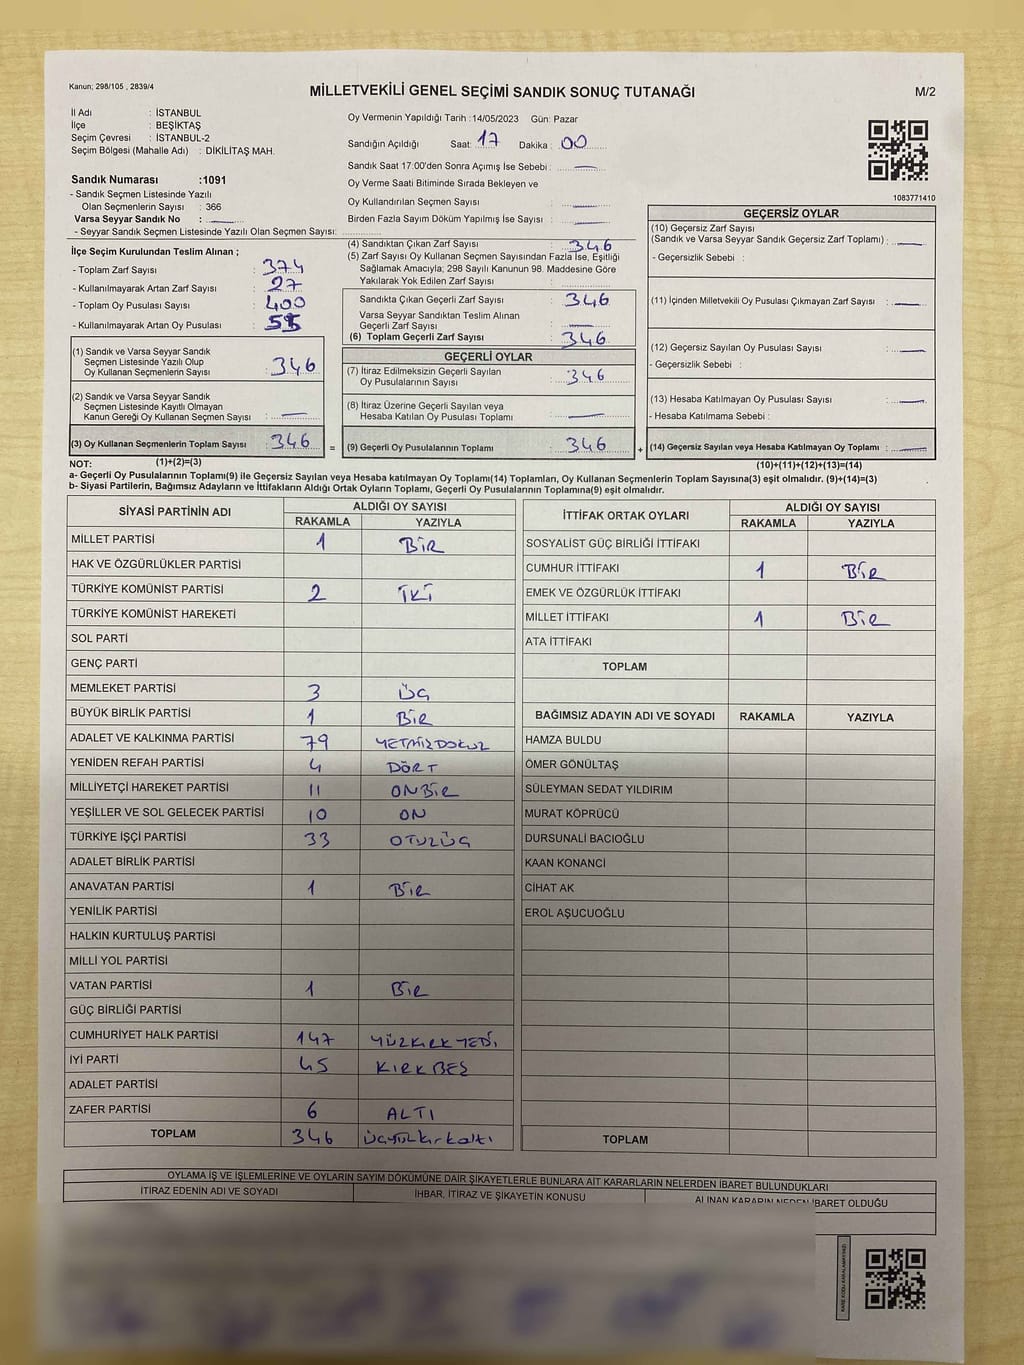 Kanun; 298/105 , 2839/4
MİLLETVEKİLİ GENEL SEÇİMİ SANDIK SONUÇ TUTANAĞI
M/2
İl Adı : İSTANBUL
İlçe : BEŞİKTAŞ
Seçim Çevresi : İSTANBUL-2
Seçim Bölgesi (Mahalle Adı) : DİKİLİTAŞ MAH.
Sandık Numarası :1091
- Sandık Seçmen Listesinde Yazılı
Olan Seçmenlerin Sayısı : 366
Varsa Seyyar Sandık No :
- Seyyar Sandık Seçmen Listesinde Yazılı Olan Seçmen Sayısı:
Oy Vermenin Yapıldığı Tarih :14/05/2023 Gün: Pazar
Sandığın Açıldığı Saat: 17 Dakika : 00
Sandık Saat 17:00'den Sonra Açımış İse Sebebi :
Oy Verme Saati Bitiminde Sırada Bekleyen ve
Oy Kullandırılan Seçmen Sayısı :
Birden Fazla Sayım Döküm Yapılmış İse Sayısı :
1083771410
İlçe Seçim Kurulundan Teslim Alınan ;
- Toplam Zarf Sayısı : 374
- Kullanılmayarak Artan Zarf Sayısı : 27
- Toplam Oy Pusulası Sayısı : 400
- Kullanılmayarak Artan Oy Pusulası :
(1) Sandık ve Varsa Seyyar Sandık
Seçmen Listesinde Yazılı Olup
Oy Kullanan Seçmenlerin Sayısı : 346
(2) Sandık ve Varsa Seyyar Sandık
Seçmen Listesinde Kayıtlı Olmayan
Kanun Gereği Oy Kullanan Seçmen Sayısı :
(3) Oy Kullanan Seçmenlerin Toplam Sayısı : 346
(4) Sandıktan Çıkan Zarf Sayısı : 346
(5) Zarf Sayısı Oy Kullanan Seçmen Sayısından Fazla İse, Eşitliği
Sağlamak Amacıyla; 298 Sayılı Kanunun 98. Maddesine Göre
Yakılarak Yok Edilen Zarf Sayısı :
Sandıkta Çıkan Geçerli Zarf Sayısı : 346
Varsa Seyyar Sandıktan Teslim Alınan
Geçerli Zarf Sayısı :
(6) Toplam Geçerli Zarf Sayısı : 346
GEÇERLİ OYLAR
(7) İtiraz Edilmeksizin Geçerli Sayılan
Oy Pusulalarının Sayısı : 346
(8) İtiraz Üzerine Geçerli Sayılan veya
Hesaba Katılan Oy Pusulası Toplamı :
= (9) Geçerli Oy Pusulalarının Toplamı : 346
GEÇERSİZ OYLAR
(10) Geçersiz Zarf Sayısı
(Sandık ve Varsa Seyyar Sandık Geçersiz Zarf Toplamı) :
- Geçersizlik Sebebi :
(11) İçinden Milletvekili Oy Pusulası Çıkmayan Zarf Sayısı :
(12) Geçersiz Sayılan Oy Pusulası Sayısı :
- Geçersizlik Sebebi :
(13) Hesaba Katılmayan Oy Pusulası Sayısı :
- Hesaba Katılmama Sebebi :
+ (14) Geçersiz Sayılan veya Hesaba Katılmayan Oy Toplamı :
NOT: (1)+(2)=(3)
(10)+(11)+(12)+(13)=(14)
a- Geçerli Oy Pusulalarının Toplamı(9) ile Geçersiz Sayılan veya Hesaba katılmayan Oy Toplamı(14) Toplamları, Oy Kullanan Seçmenlerin Toplam Sayısına(3) eşit olmalıdır. (9)+(14)=(3)
b- Siyasi Partilerin, Bağımsız Adayların ve İttifakların Aldığı Ortak Oyların Toplamı, Geçerli Oy Pusulalarının Toplamına(9) eşit olmalıdır.
SİYASİ PARTİNİN ADI ALDIĞI OY SAYISI
RAKAMLA YAZIYLA
MİLLET PARTİSİ 1 BİR
HAK VE ÖZGÜRLÜKLER PARTİSİ
TÜRKİYE KOMÜNİST PARTİSİ 2 İKİ
TÜRKİYE KOMÜNİST HAREKETİ
SOL PARTİ
GENÇ PARTİ
MEMLEKET PARTİSİ 3 ÜÇ
BÜYÜK BİRLİK PARTİSİ 1 BİR
ADALET VE KALKINMA PARTİSİ 79 YETMİŞDOKUZ
YENİDEN REFAH PARTİSİ 4 DÖRT
MİLLİYETÇİ HAREKET PARTİSİ 11 ONBİR
YEŞİLLER VE SOL GELECEK PARTİSİ 10 ON
TÜRKİYE İŞÇİ PARTİSİ 33 OTUZÜÇ
ADALET BİRLİK PARTİSİ
ANAVATAN PARTİSİ 1 BİR
YENİLİK PARTİSİ
HALKIN KURTULUŞ PARTİSİ
MİLLİ YOL PARTİSİ
VATAN PARTİSİ 1 BİR
GÜÇ BİRLİĞİ PARTİSİ
CUMHURİYET HALK PARTİSİ 147 YÜZKIRKYEDİ
İYİ PARTİ 45 KIRKBEŞ
ADALET PARTİSİ
ZAFER PARTİSİ 6 ALTI
TOPLAM 346 üçyüzkırkaltı
İTTİFAK ORTAK OYLARI ALDIĞI OY SAYISI
RAKAMLA YAZIYLA
SOSYALİST GÜÇ BİRLİĞİ İTTİFAKI
CUMHUR İTTİFAKI 1 BİR
EMEK VE ÖZGÜRLÜK İTTİFAKI
MİLLET İTTİFAKI 1 BİR
ATA İTTİFAKI
TOPLAM
BAĞIMSIZ ADAYIN ADI VE SOYADI RAKAMLA YAZIYLA
HAMZA BULDU
ÖMER GÖNÜLTAŞ
SÜLEYMAN SEDAT YILDIRIM
MURAT KÖPRÜCÜ
DURSUNALİ BACIOĞLU
KAAN KONANCİ
CİHAT AK
EROL AŞUCUOĞLU
TOPLAM
OYLAMA İŞ VE İŞLEMLERİNE VE OYLARIN SAYIM DÖKÜMÜNE DAİR ŞİKAYETLERLE BUNLARA AİT KARARLARIN NELERDEN İBARET BULUNDUKLARI
İTİRAZ EDENİN ADI VE SOYADI İHBAR, İTİRAZ VE ŞİKAYETİN KONUSU ALINAN KARARIN NEDEN İBARET OLDUĞU
KARE KODU KARALAMAYINIZ!